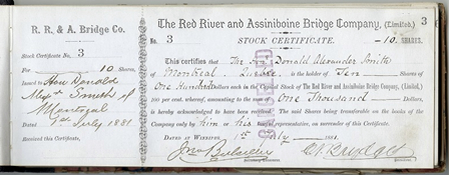 R. R. & A. Bridge Co.
Stock Certificate No. 3
For 10 Shares,
Issued to
Hon Donald
Alexr Smith of
Montreal
July 1881
Received this Certificate,
3
The Red River and Assiniboine Bridge Company, (Limited.)
No. 3 STOCK CERTIFICATE. —10— SHARES.
This certifies that The Donald Alexander Smith
Montreal is the holder of Ten Shares of
One Hundred Dollars each in the Capital Stock of The Red River and Assiniboine Bridge Company, (Limited,)
per cent, whereof, amounting to the sum of One Thousand Dollars,
is hereby acknowledged to have been received. The said Shares being transferable on the books of the
Company only by him or his on surrender of this Certificate.
DATED AT WINNIPEG, July 1881.
CANCELLED